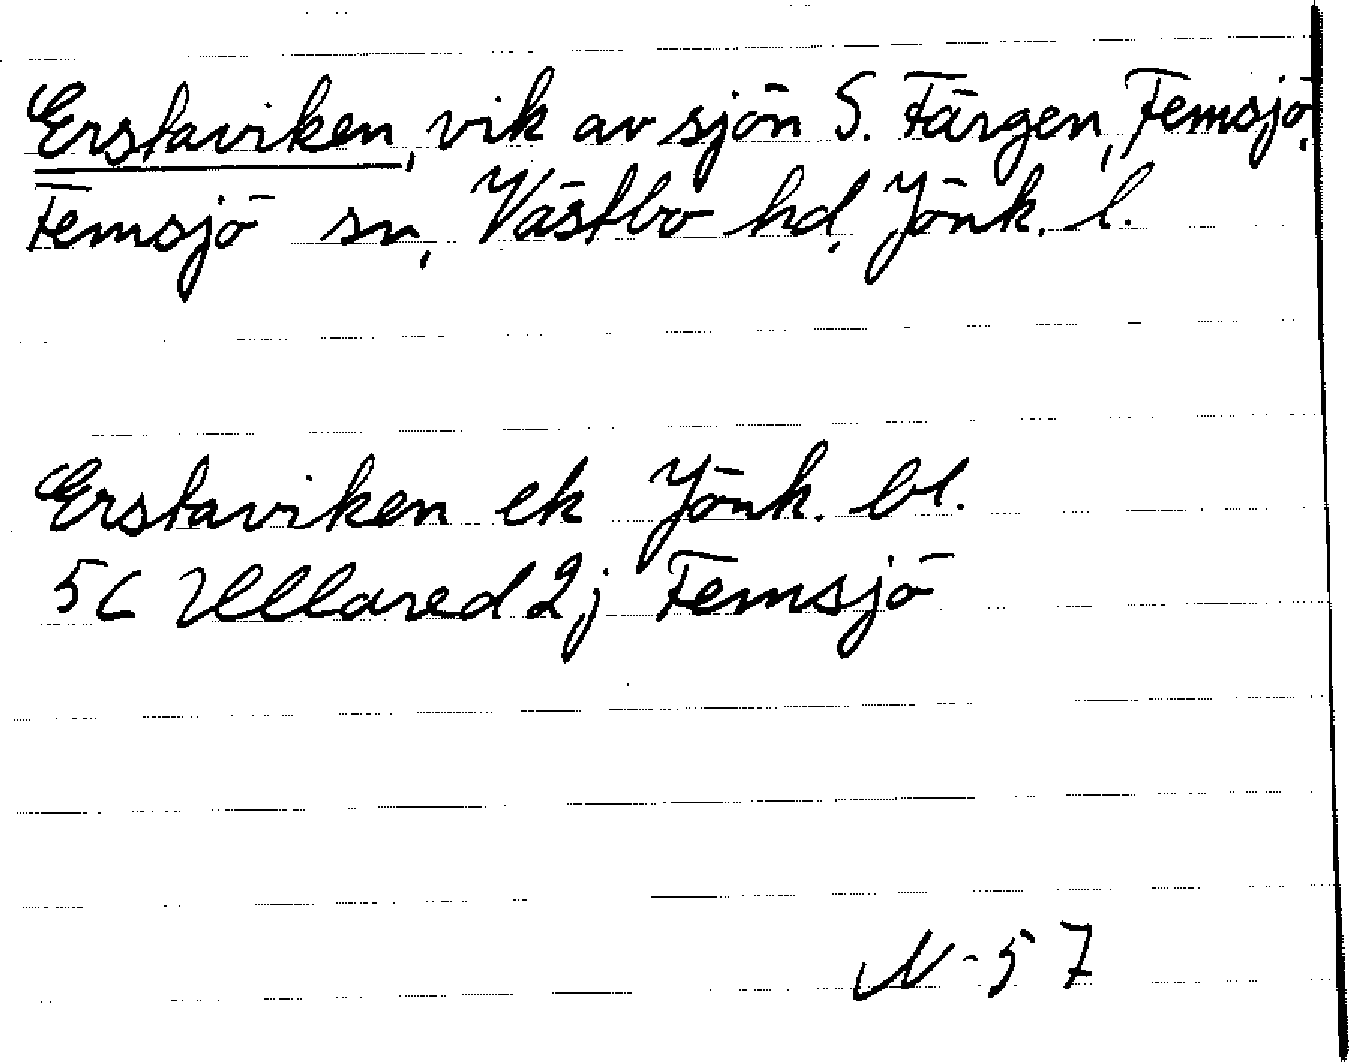 Erstaviken, vik av sjön S. Färgen, Femsjö,
Femsjö sn, Västbo hd, Jönk. l.
Erstaviken ek Jönk. bl.
5C Ullared 2j Femsjö
N-57